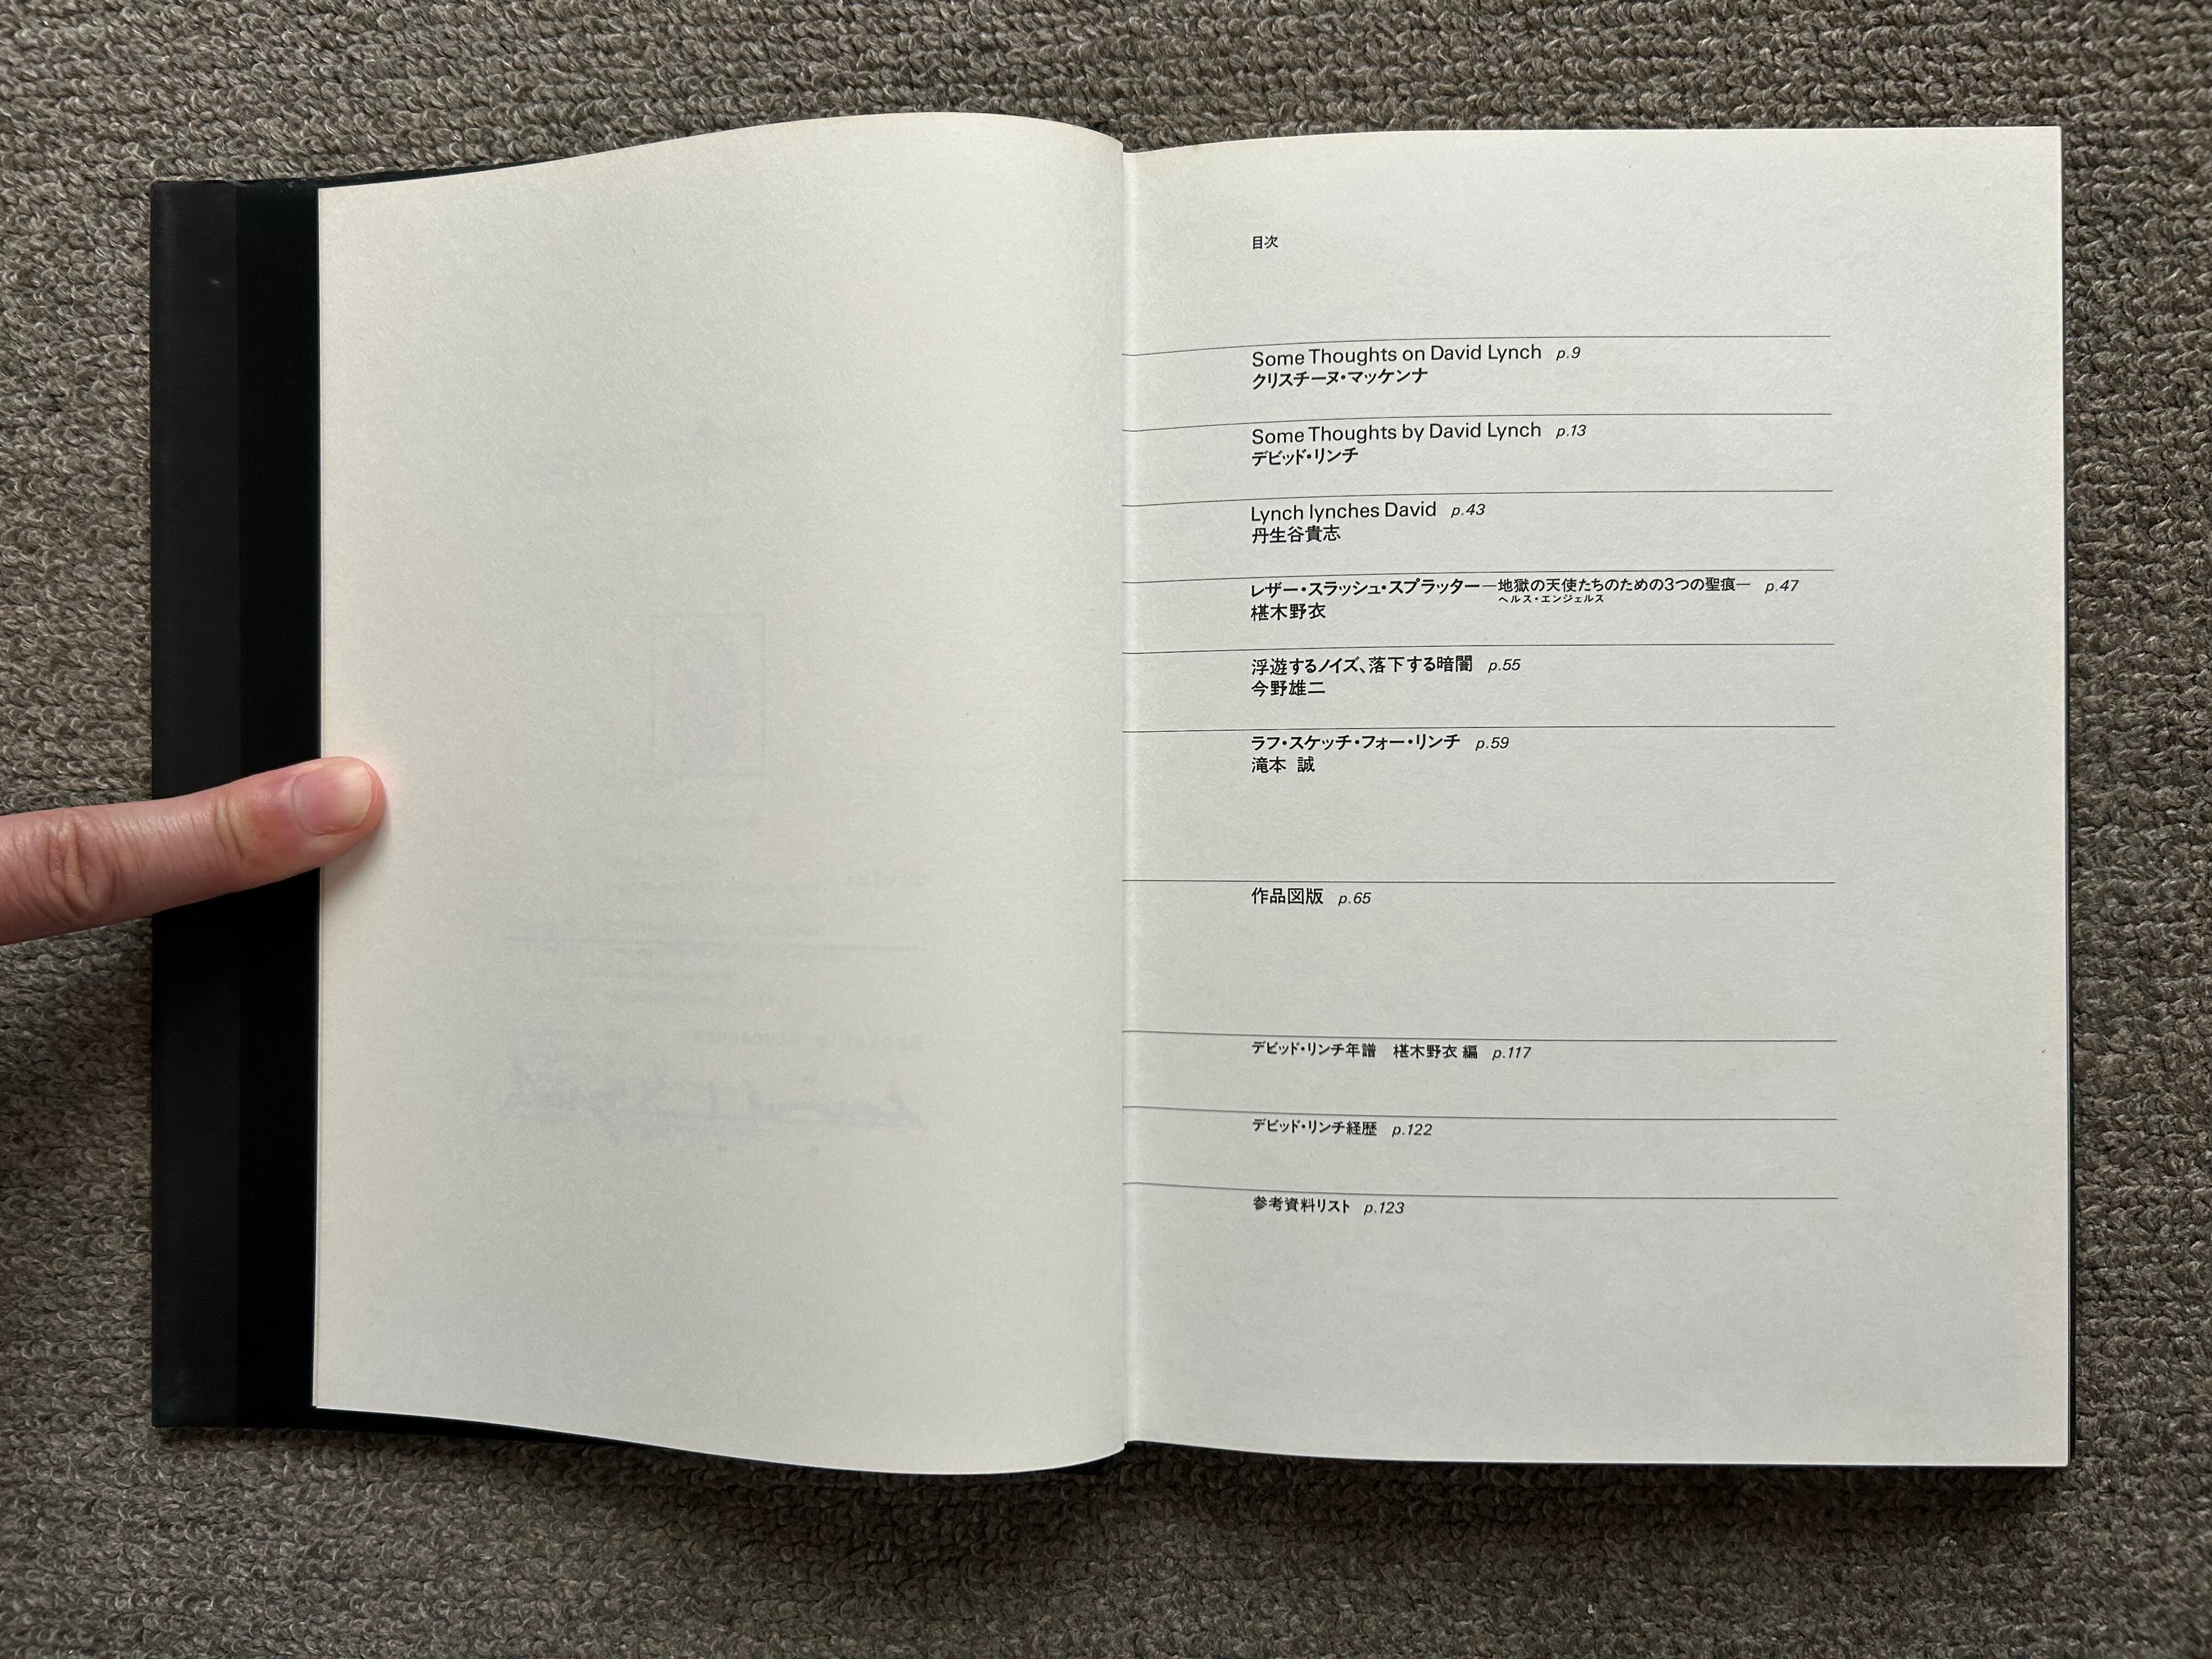 目次
Some Thoughts on David Lynch p.9
クリスチーヌ・マッケンナ
Some Thoughts by David Lynch p.13
デビッド・リンチ
Lynch lynches David p.43
丹生谷貴志
レザー・スラッシュ・スプラッター―地獄の天使たちのための3つの聖痕― p.47
ヘルス・エンジェルス
椹木野衣
浮遊するノイズ、落下する暗闇 p.55
今野雄二
ラフ・スケッチ・フォー・リンチ p.59
滝本 誠
作品図版 p.65
デビッド・リンチ年譜 椹木野衣 編 p.117
デビッド・リンチ経歴 p.122
参考資料リスト p.123